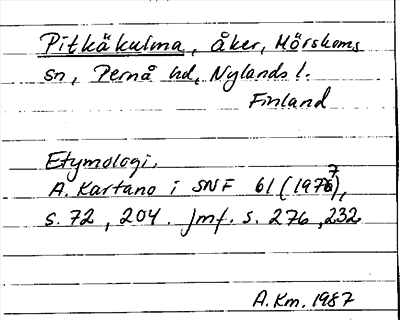 Pitkäkulma, åker, Mörskoms
sn, Pernå hd, Nylands l.
Finland
Etymologi,
A. Kartano i SNF 61 (1977),
s. 72, 204. Jmf. s. 276, 232
A.Km. 1987